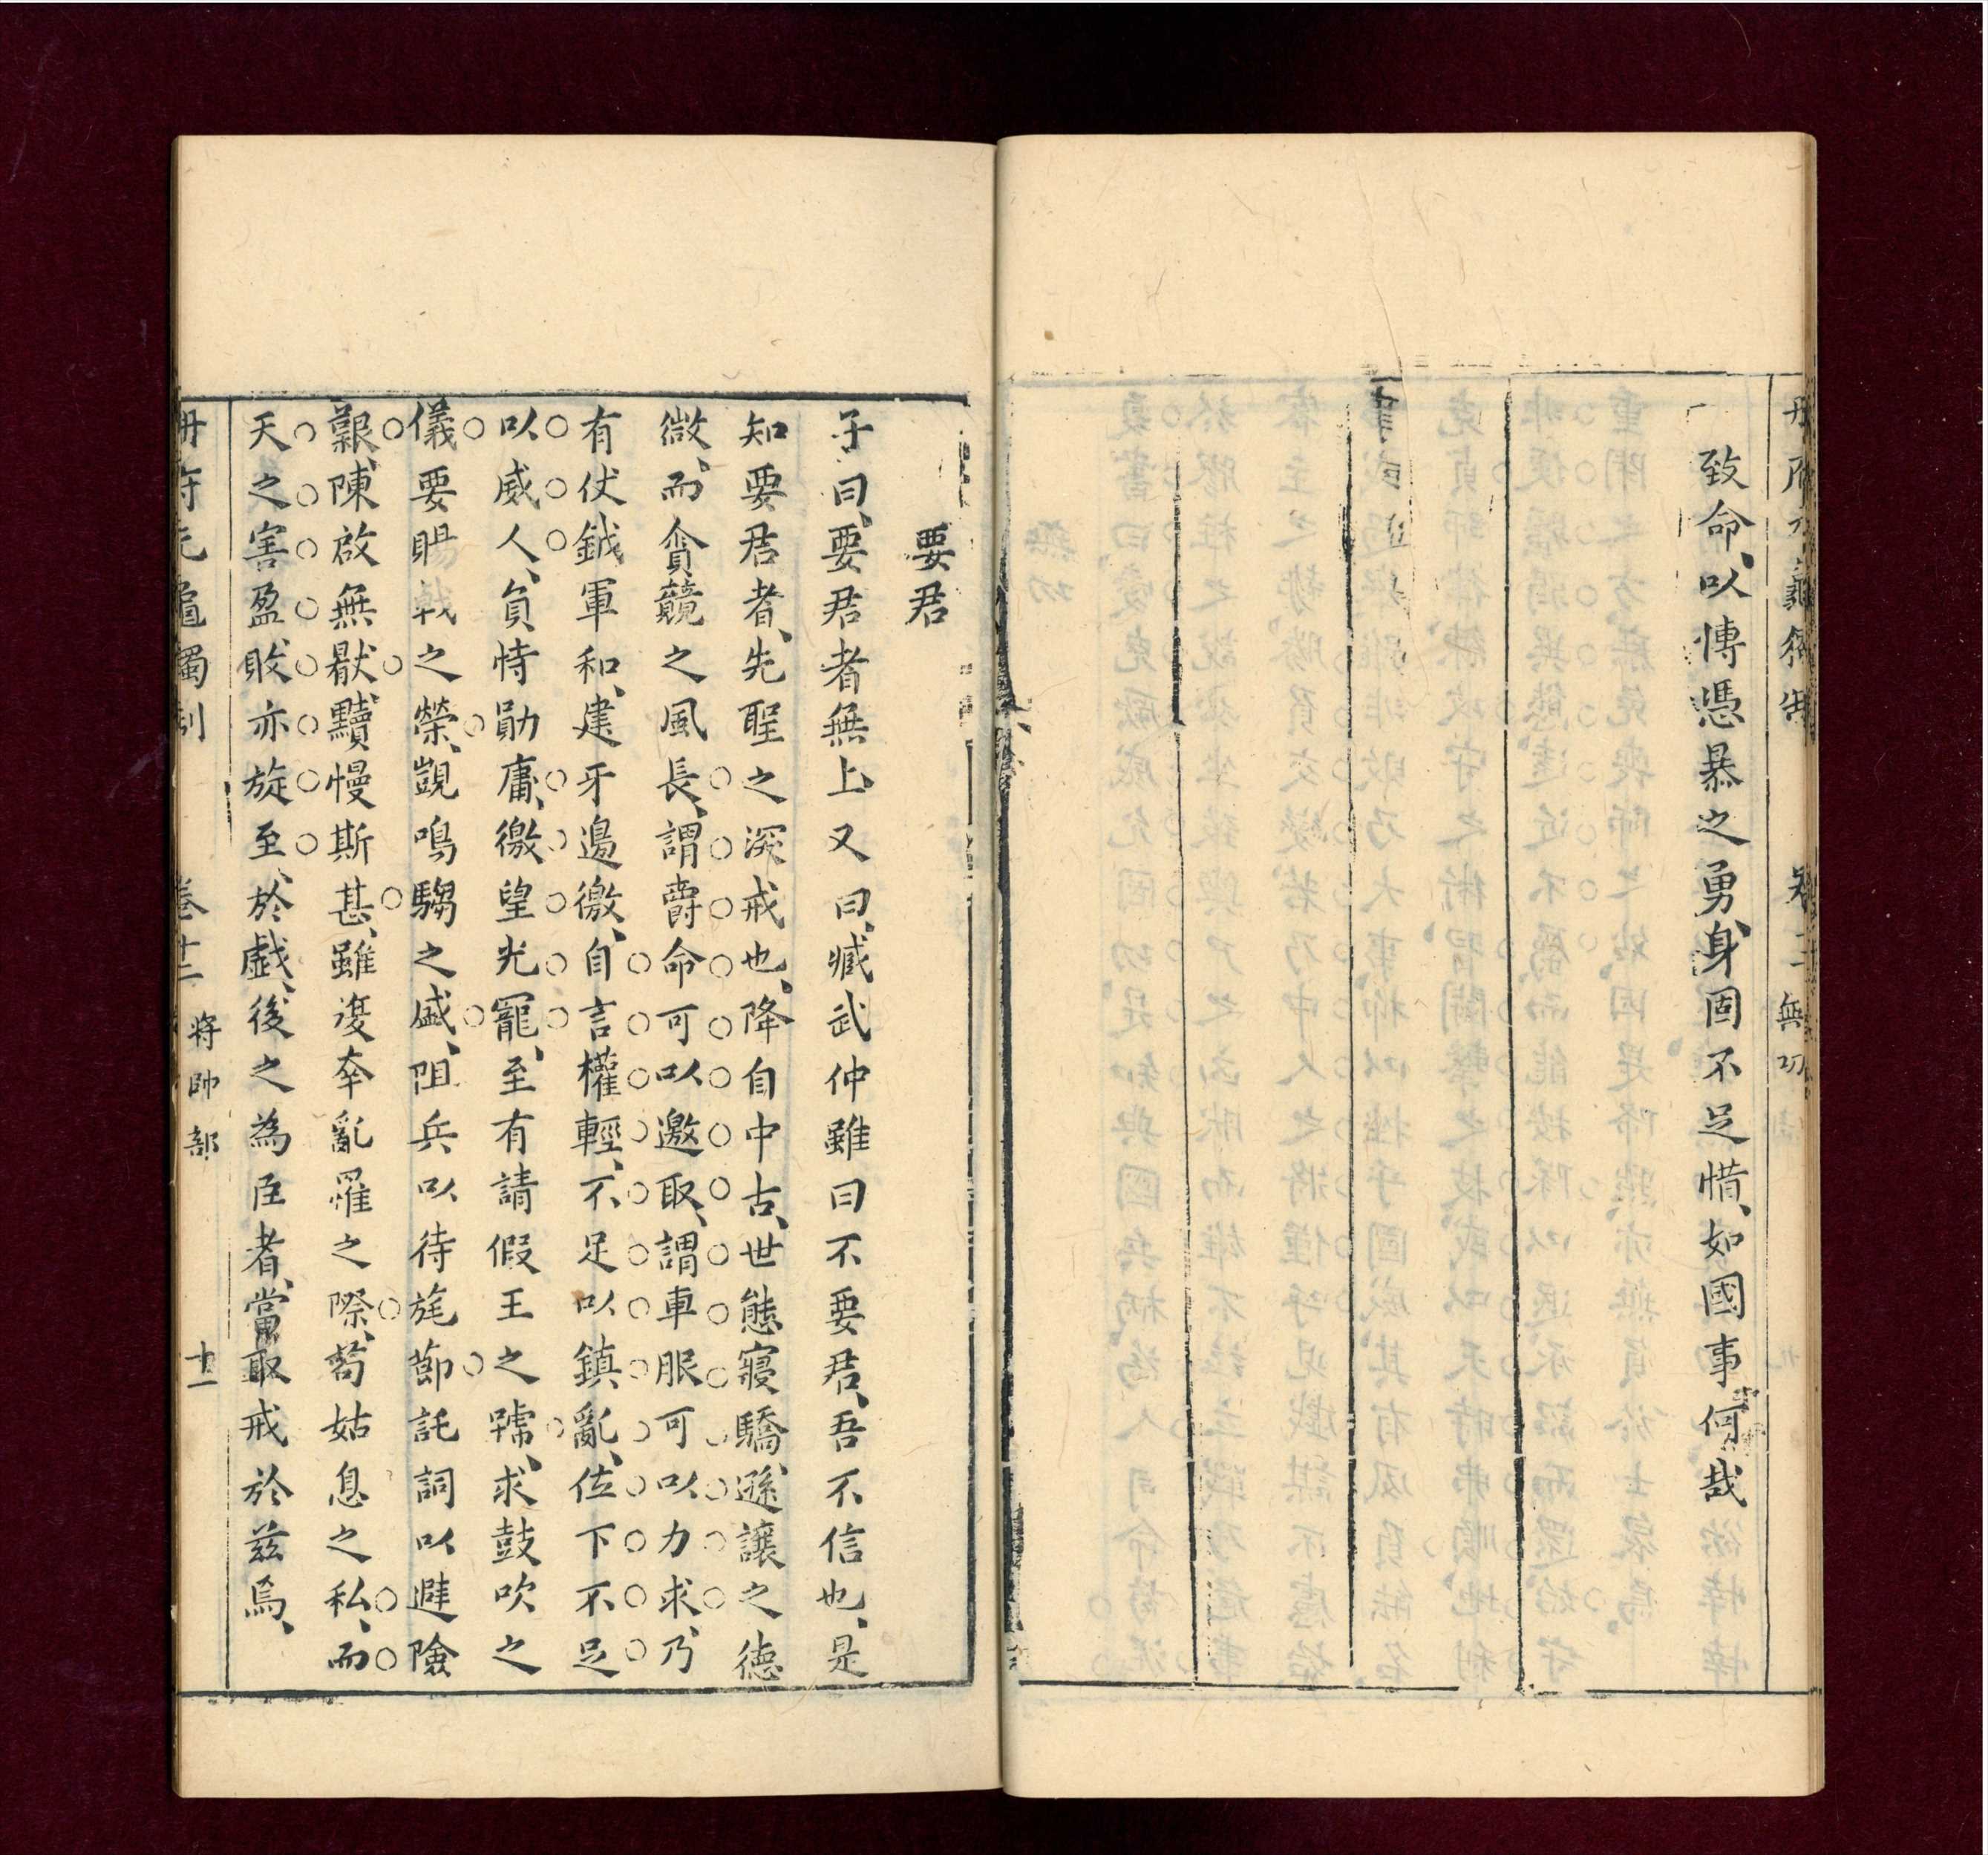 致命、以愽憑暴之勇、身固不足惜、如國事何哉
無功
要君
子曰、要君者無上、又曰、臧武仲雖曰不要君、吾不信也、是
知要君者、先聖之深戒也、降自中古、世態寖驕、遜讓之德
微、而貪競之風長、謂爵命可以邀取、謂車服可以力求、乃
有仗鉞軍和、建牙邊徼、自言權輕、不足以鎮亂、位下不足
以威人、負恃勛庸、徼望光寵、至有請假王之號、求鼓吹之
儀要賜戟之榮、覬鳴騶之盛、阻兵以待旄莭託詞以避險
艱、陳啟無猒、黷慢斯甚、雖復夲亂罹之際、苟姑息之私、而
天之害盈、敗亦旋至、於戲、後之為臣者、當取戒於兹焉、
卷十二
將帥部
十一